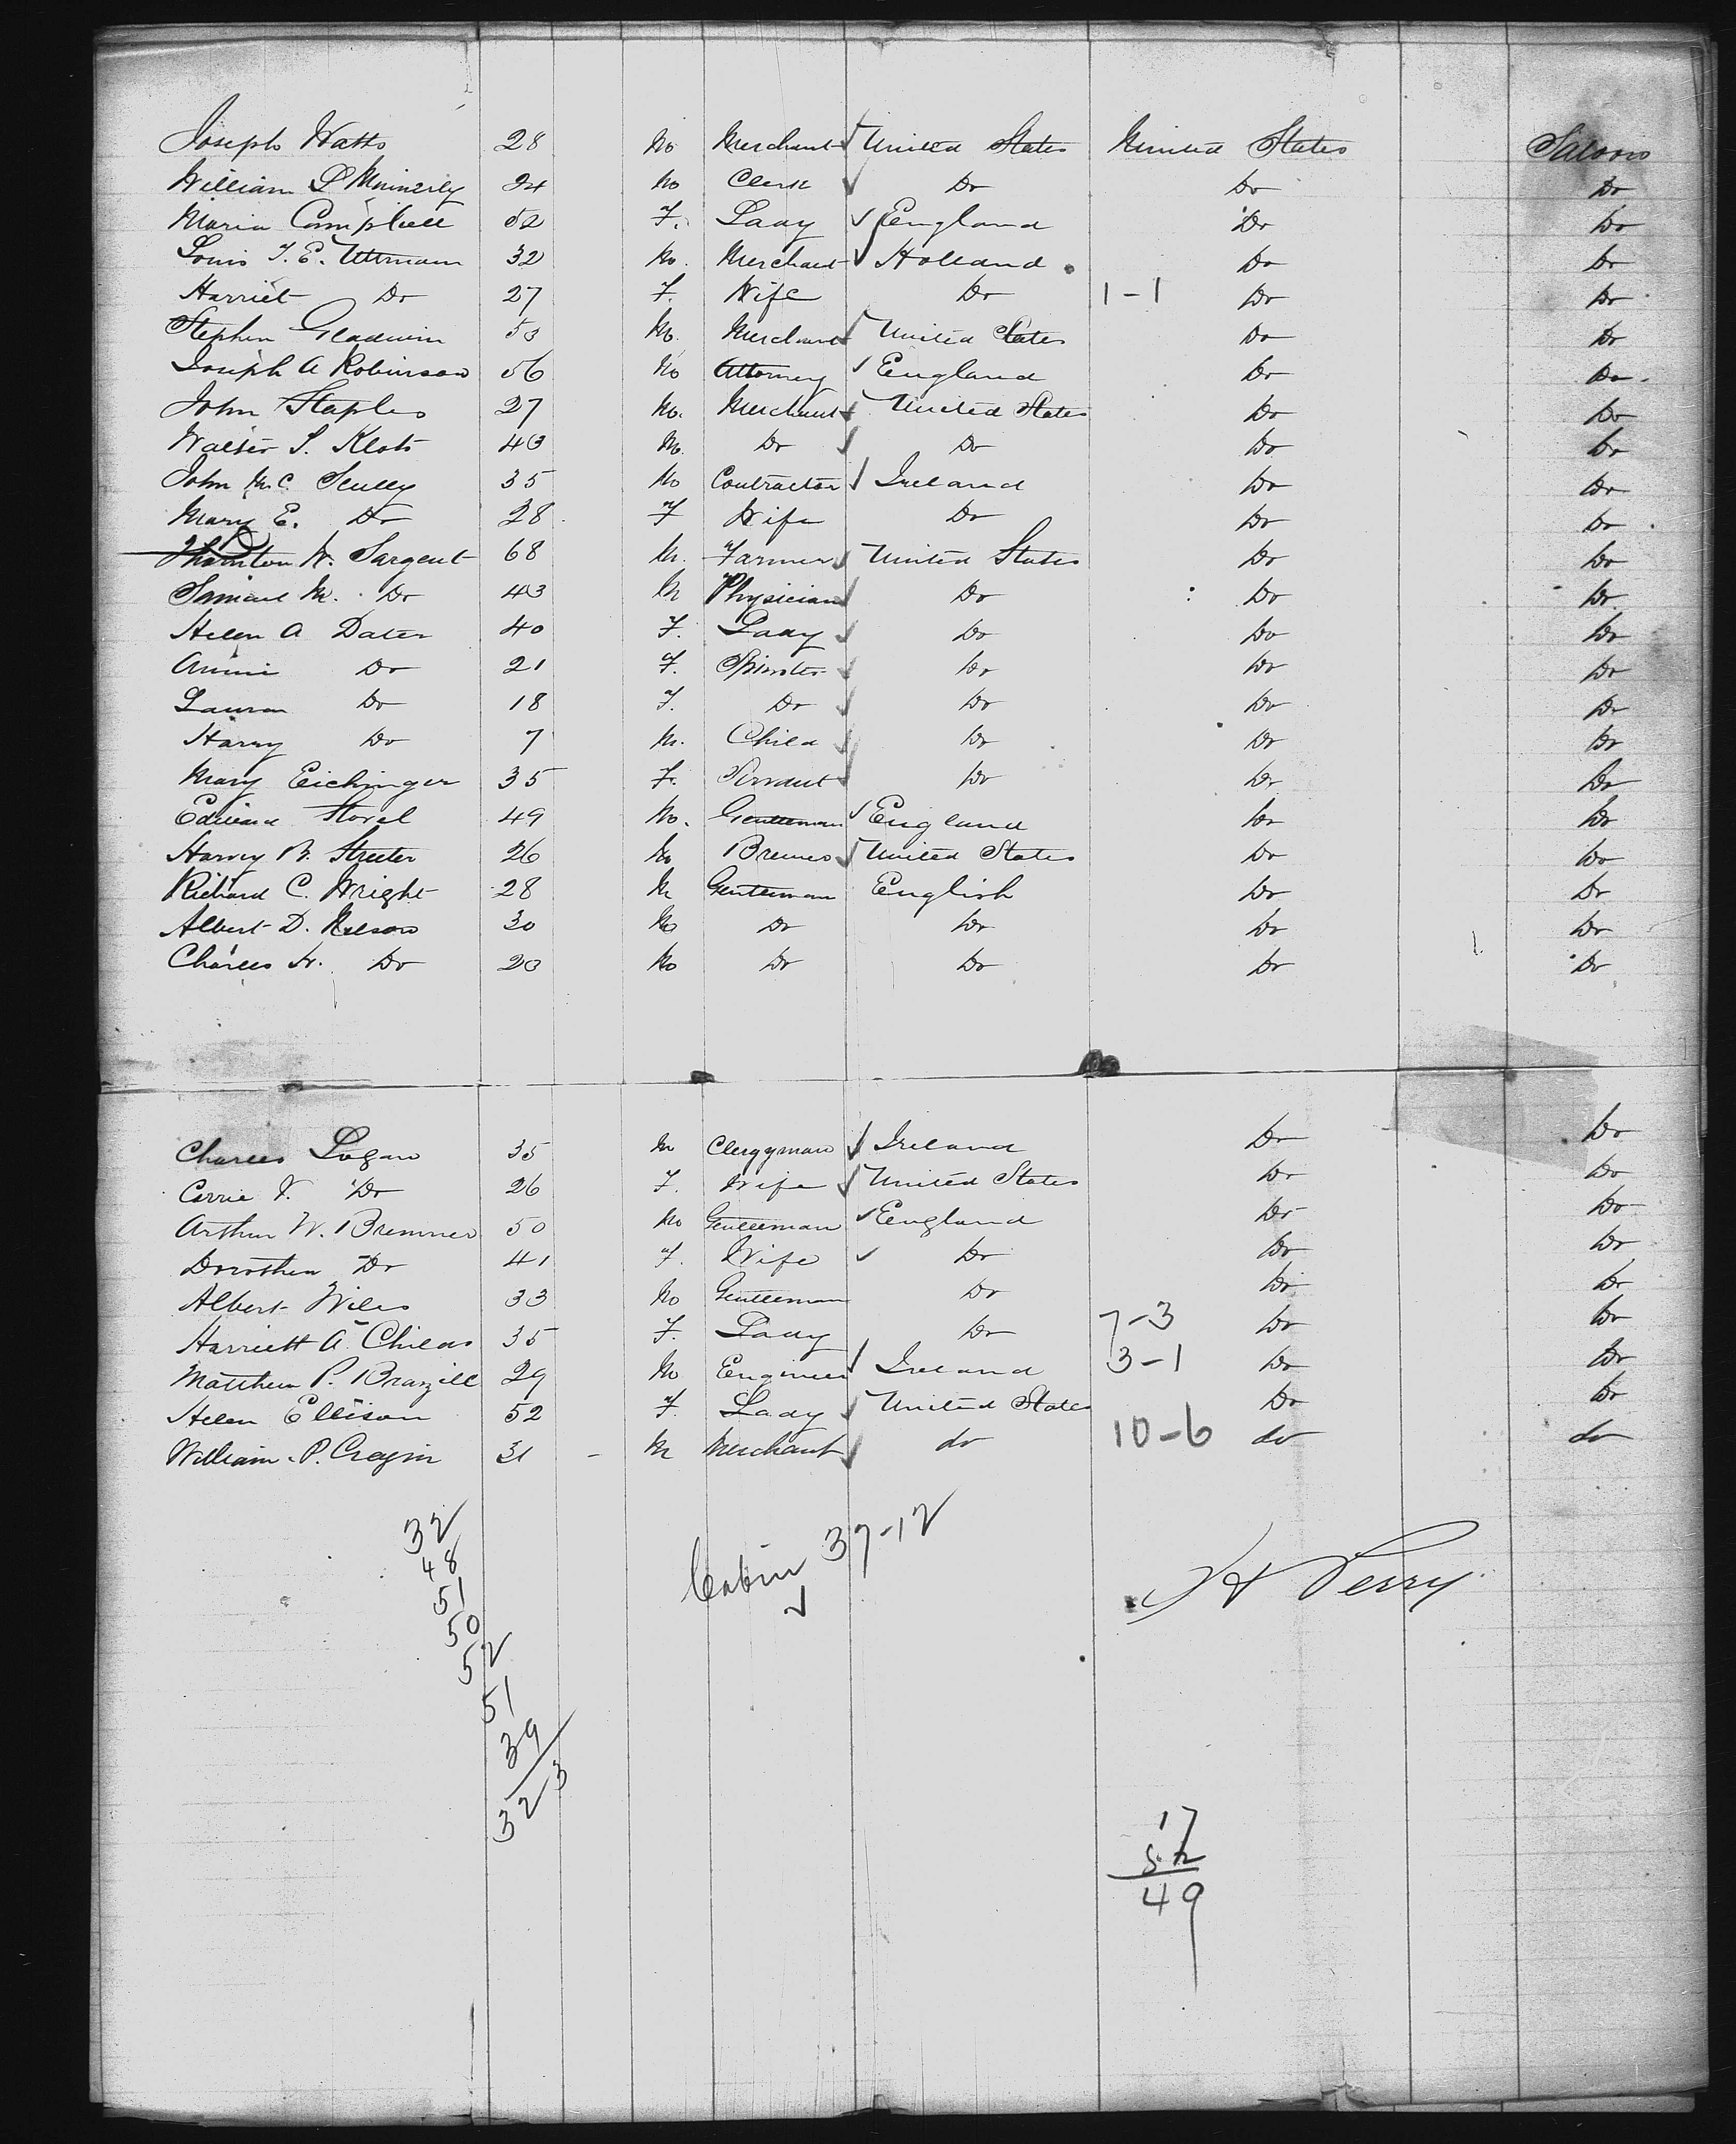 Joseph Watts 28 M Merchant United States United States Saloon
William L Minnerly 24 M Clerk Do Do Do
Maria Campbell 52 F. Lady England Do Do
Louis T. E. Ullmann 32 M. Merchant Holland Do Do
Harriet Do 27 F. Wife Do 1-1 Do Do
Stephen Gladwin 53 M. Merchant United States Do Do
Joseph A Robinson 56 M Attorney England Do Do
John Staples 27 M. Merchant United States Do Do
Walter S. Klots 40 M. Do Do Do Do
John Mc Scully 35 M Contractor Ireland Do Do
Mary E. Do 28 F Wife Do Do Do
Thornton W. Sargent 68 M. Farmer United States Do Do
Samuel M. Do 43 M Physician Do Do Do
Helen A Dater 40 F. Lady Do Do Do
Annie Do 21 F. Spinster Do Do Do
Laura Do 18 F. Do Do Do Do
Harry Do 7 M. Child Do Do Do
Mary Eichinger 35 F. Servant Do Do Do
Edward Storel 49 M. Gentleman England Do Do
Harvey B. Streeter 26 M Brewer United States Do Do
Richard C. Wright 28 M Gentleman English Do Do
Albert D. Nelson 30 M Do Do Do Do
Charles H. Do 20 M Do Do Do Do
Charles Logan 35 M Clergyman Ireland Do Do
Carrie V. Do 26 F. Wife United States Do Do
Arthur W. Bremner 50 M Gentleman England Do Do
Dorothea Do 41 F. Wife Do Do Do
Albert Wiles 33 M Gentleman Do Do Do
Harriett A Childs 35 F. Lady Do 7-3 Do Do
Matthew P. Brazill 29 M Engineer Ireland 3-1 Do Do
Helen Ellison 52 F. Lady United States Do Do
William P. Cragin 31 M Merchant do 10-6 do do
32
48
51
50
52
51
39
323
Cabin 37-12
H Perry
17
32
49